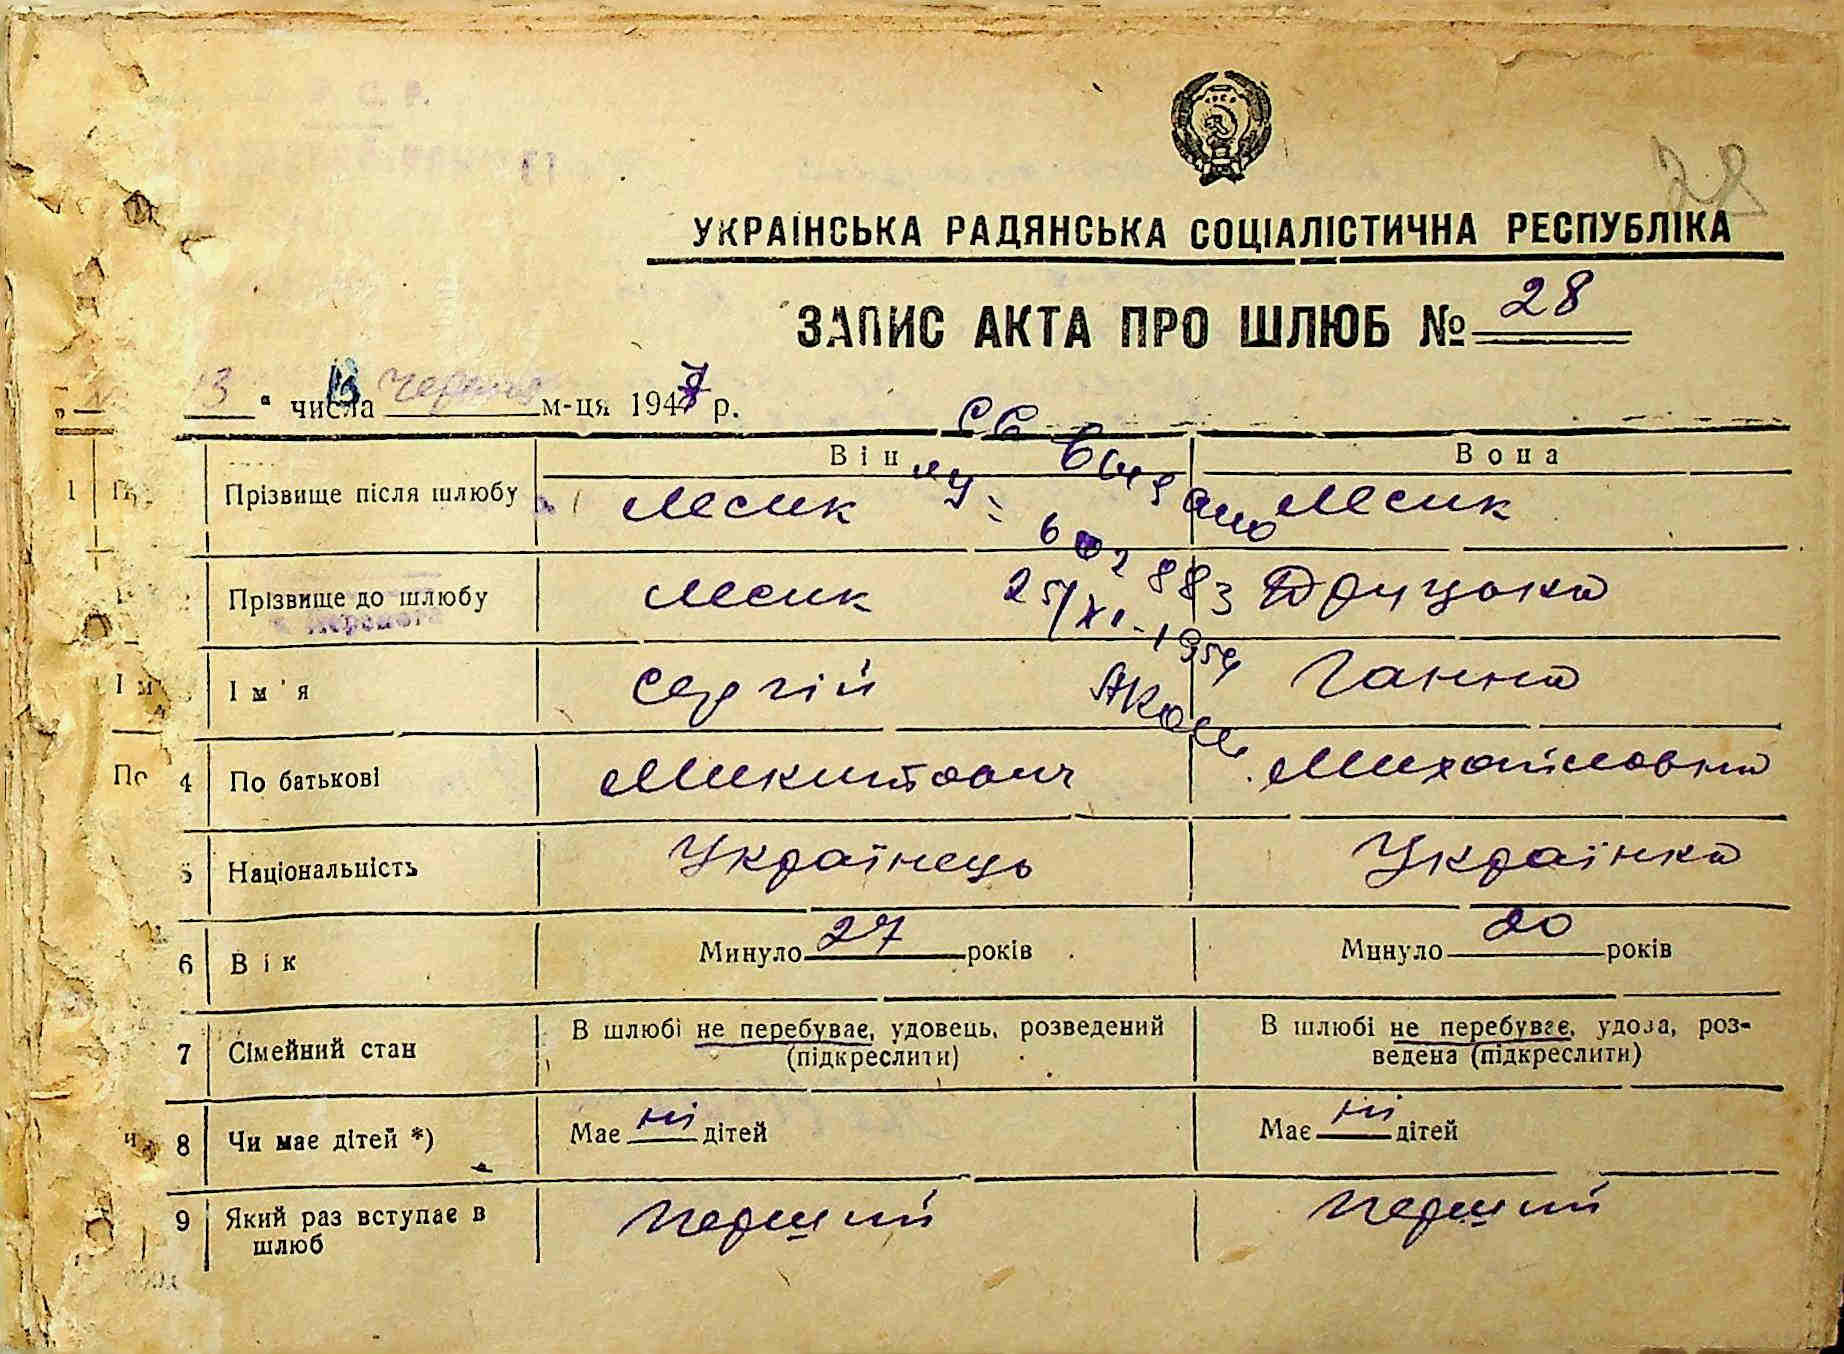 28
УКРАЇНСЬКА РАДЯНСЬКА СОЦІАЛІСТИЧНА РЕСПУБЛІКА
ЗАПИС АКТА ПРО ШЛЮБ № 28
13 " числа червня м-ця 1947 р.
Він Вона
1 Прізвище після шлюбу Лесик Лесик
св видано
яу =
602883
25/XI-1954
Прізвище до шлюбу Лесик Друцька
Ім'я Сергій Ганна
4 По батькові Микитович Михайловна
5 Національність Українець Українка
6 Вік Минуло 27 років Минуло 20 років
7 Сімейний стан В шлюбі не перебуває, удовець, розведений (підкреслити) В шлюбі не перебуває, удова, роз-
ведена (підкреслити)
8 Чи має дітей *) Має ні дітей Має ні дітей
9 Який раз вступає в шлюб Перший Перший